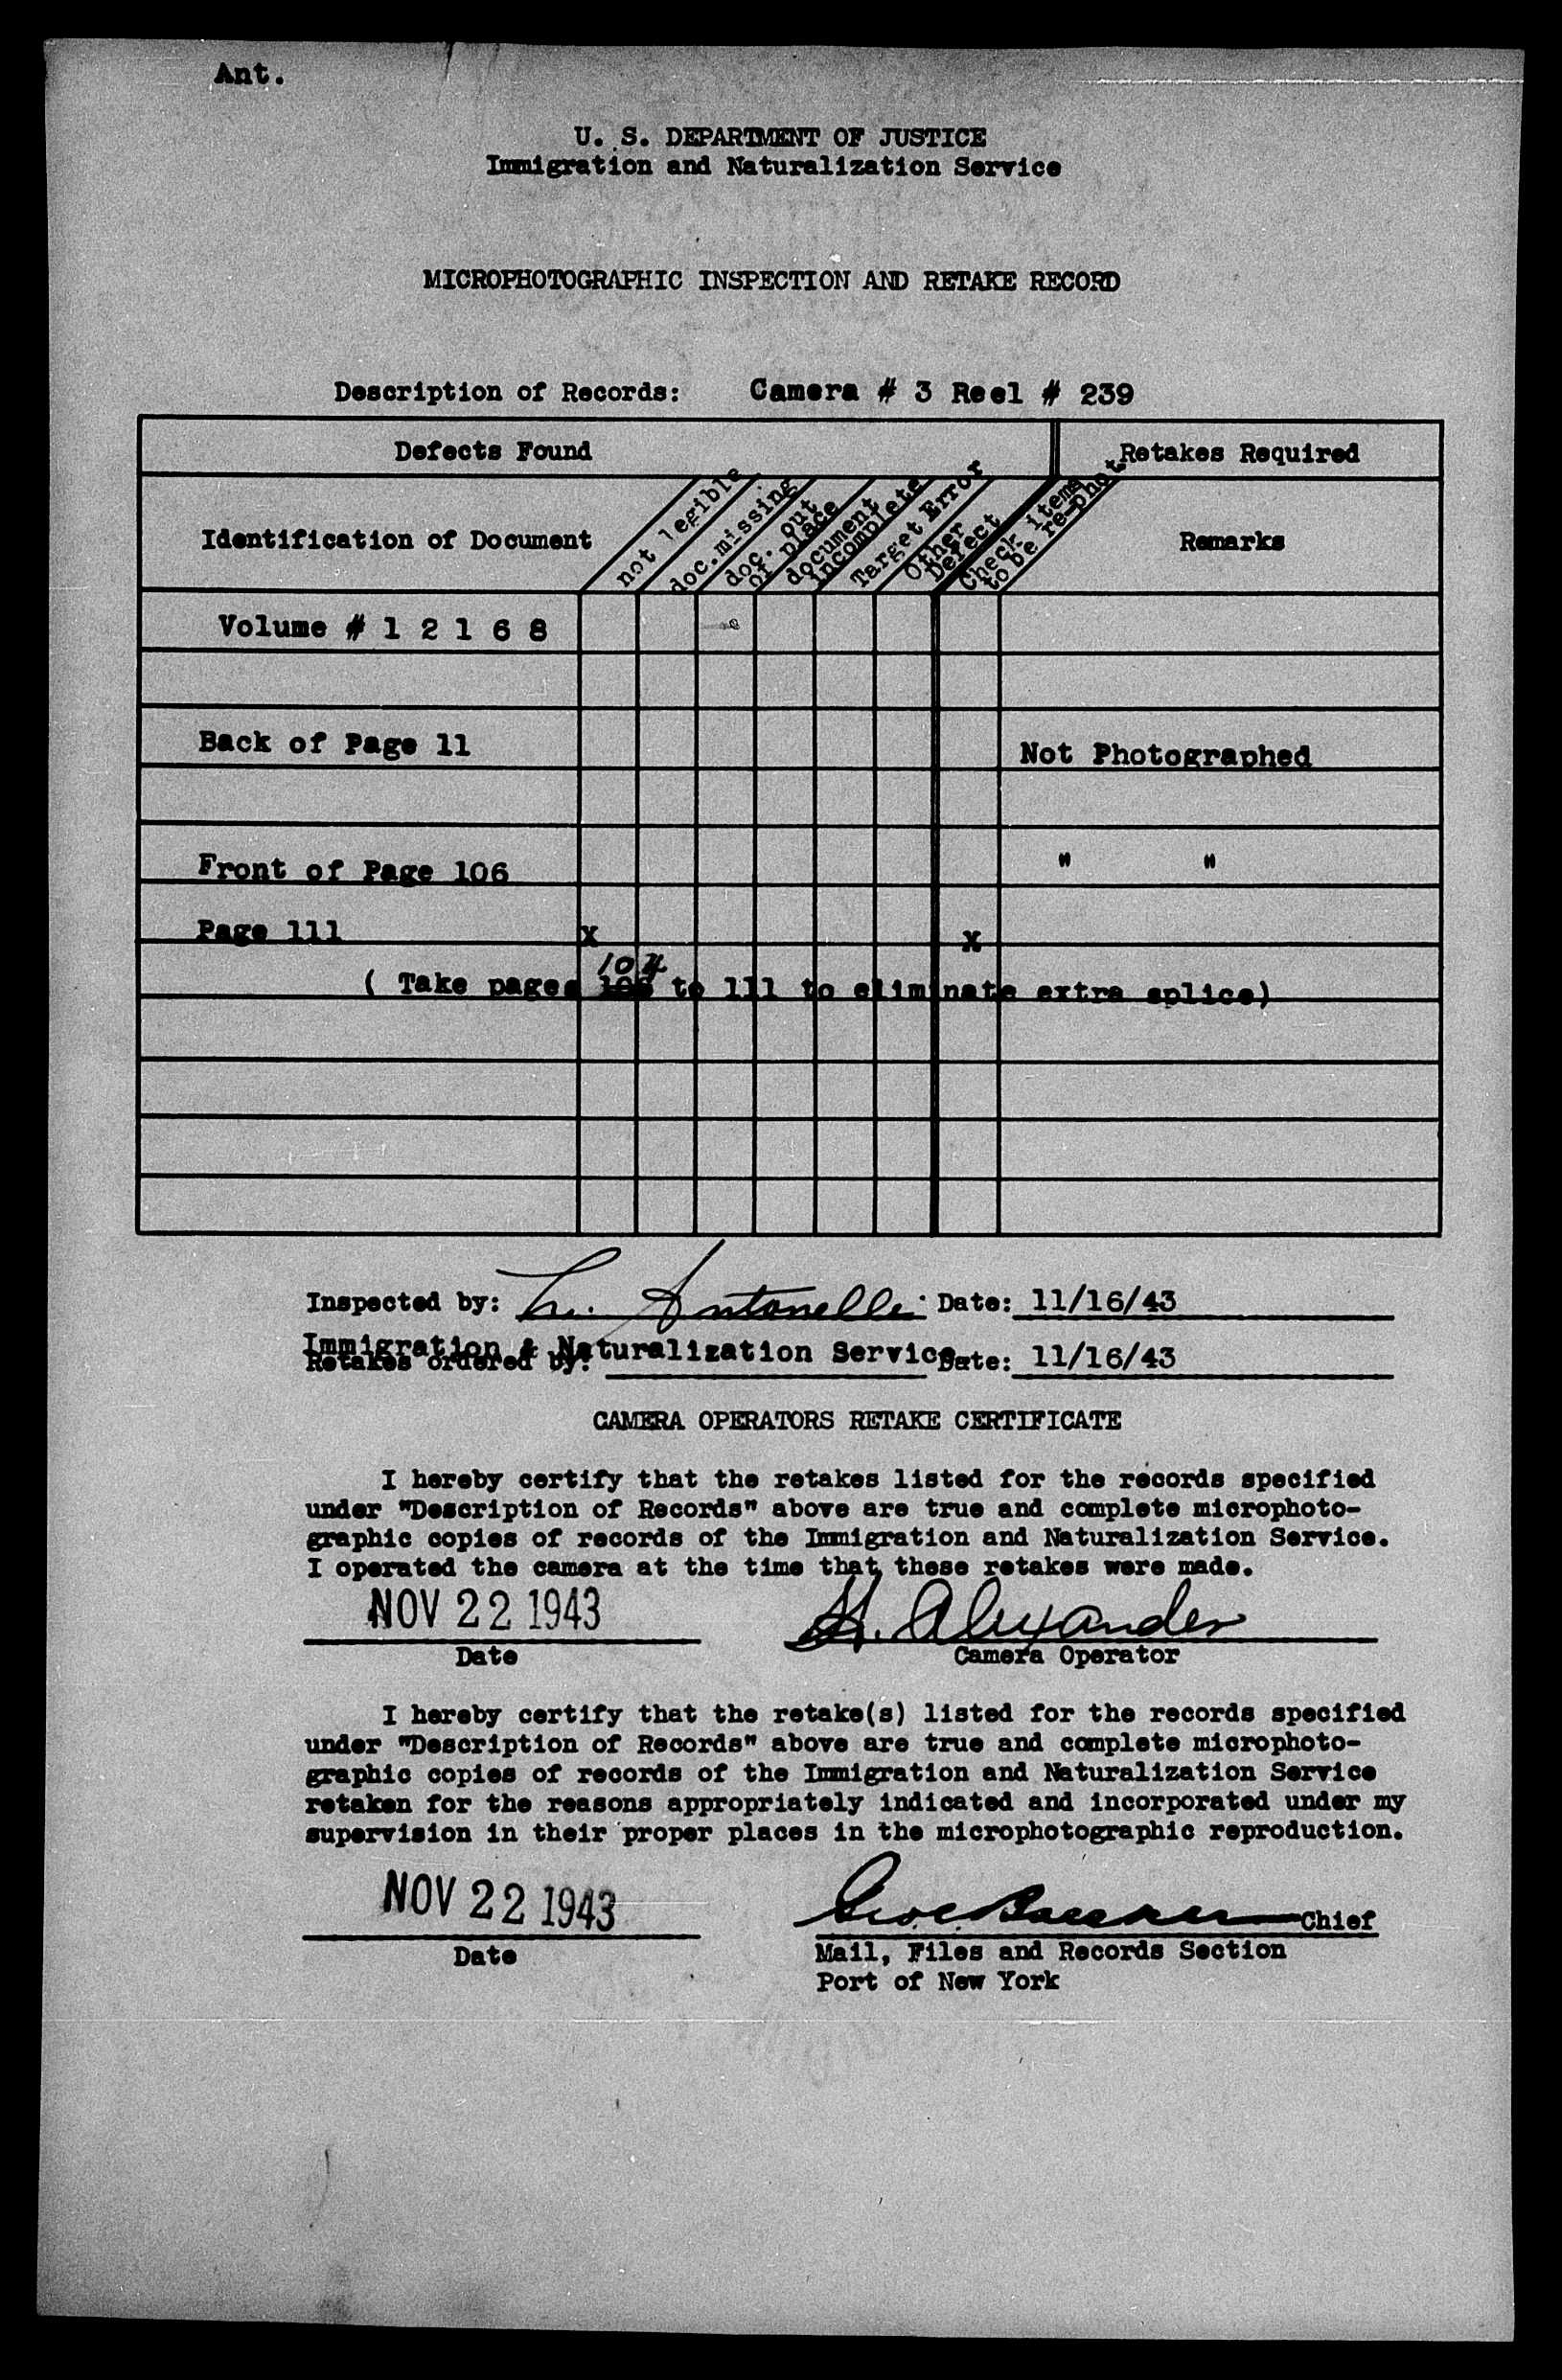 Ant.
U. S. DEPARTMENT OF JUSTICE
Immigration and Naturalization Service
MICROPHOTOGRAPHIC INSPECTION AND RETAKE RECORD
Description of Records: Camera # 3 Reel # 239
Defects Found
Retakes Required
Identification of Document
not legible
doc.missing
doc. out
of place
document
incomplete
Target Error
Other
Defect
Check items
to be re-phot
Remarks
Volume # 1 2 1 6 8
Back of Page 11
Not Photographed
Front of Page 106
" "
Page 111 x x
104
( Take pages 106 to 111 to eliminate extra splice)
Inspected by: Antonelli Date: 11/16/43
Immigration & Naturalization Service
Retakes ordered by: Date: 11/16/43
CAMERA OPERATORS RETAKE CERTIFICATE
I hereby certify that the retakes listed for the records specified
under "Description of Records" above are true and complete microphoto-
graphic copies of records of the Immigration and Naturalization Service.
I operated the camera at the time that these retakes were made.
NOV 22 1943 H. Alexander
Date Camera Operator
I hereby certify that the retake(s) listed for the records specified
under "Description of Records" above are true and complete microphoto-
graphic copies of records of the Immigration and Naturalization Service
retaken for the reasons appropriately indicated and incorporated under my
supervision in their proper places in the microphotographic reproduction.
NOV 22 1943 Chief
Date Mail, Files and Records Section
Port of New York